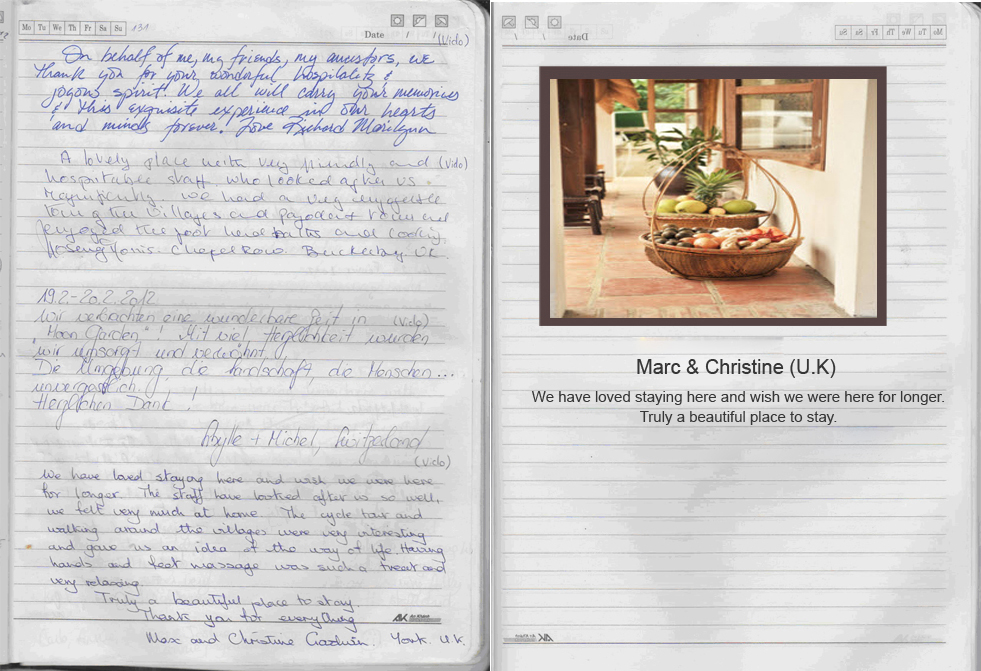 Mo Tu We Th Fr Sa Su 131
Date / / (Vido)
On behalf of me, my friends, my ancestors, we
thank you for your wonderful hospitalite &
joyous spirit! We all will carry your memories
& this exquisite experience in our hearts
and minds forever! Love Richard Marilynn
A lovely place with very friendly and (Vido)
hospitable staff who looked after us
magnificently. We had a very enjoyable
tour of the villages and
enjoyed the foot and cooking
Chapel Row. UK.
19.2-20.2.2012
Wir verbrachten eine wunderbare Zeit in (Vido)
"Moon Garden"! Mit viel Herzlichkeit wurden
wir umsorgt und verwöhnt.
Die Umgebung, die Landschaft, die Menschen...
unvergesslich.
Herzlichen Dank!
+ Michel, Switzerland
(Vido)
We have loved staying here and wish we were here
for longer. The staff have looked after us so well,
we felt very much at home. The cycle tour and
walking around the villages were very interesting
and gave us an idea of the way of life. Having
hands and feet massage was such a treat and
very relaxing.
Truly a beautiful place to stay.
Thank you for everything
Max and Christine York. U.K.
Marc & Christine (U.K)
We have loved staying here and wish we were here for longer.
Truly a beautiful place to stay.